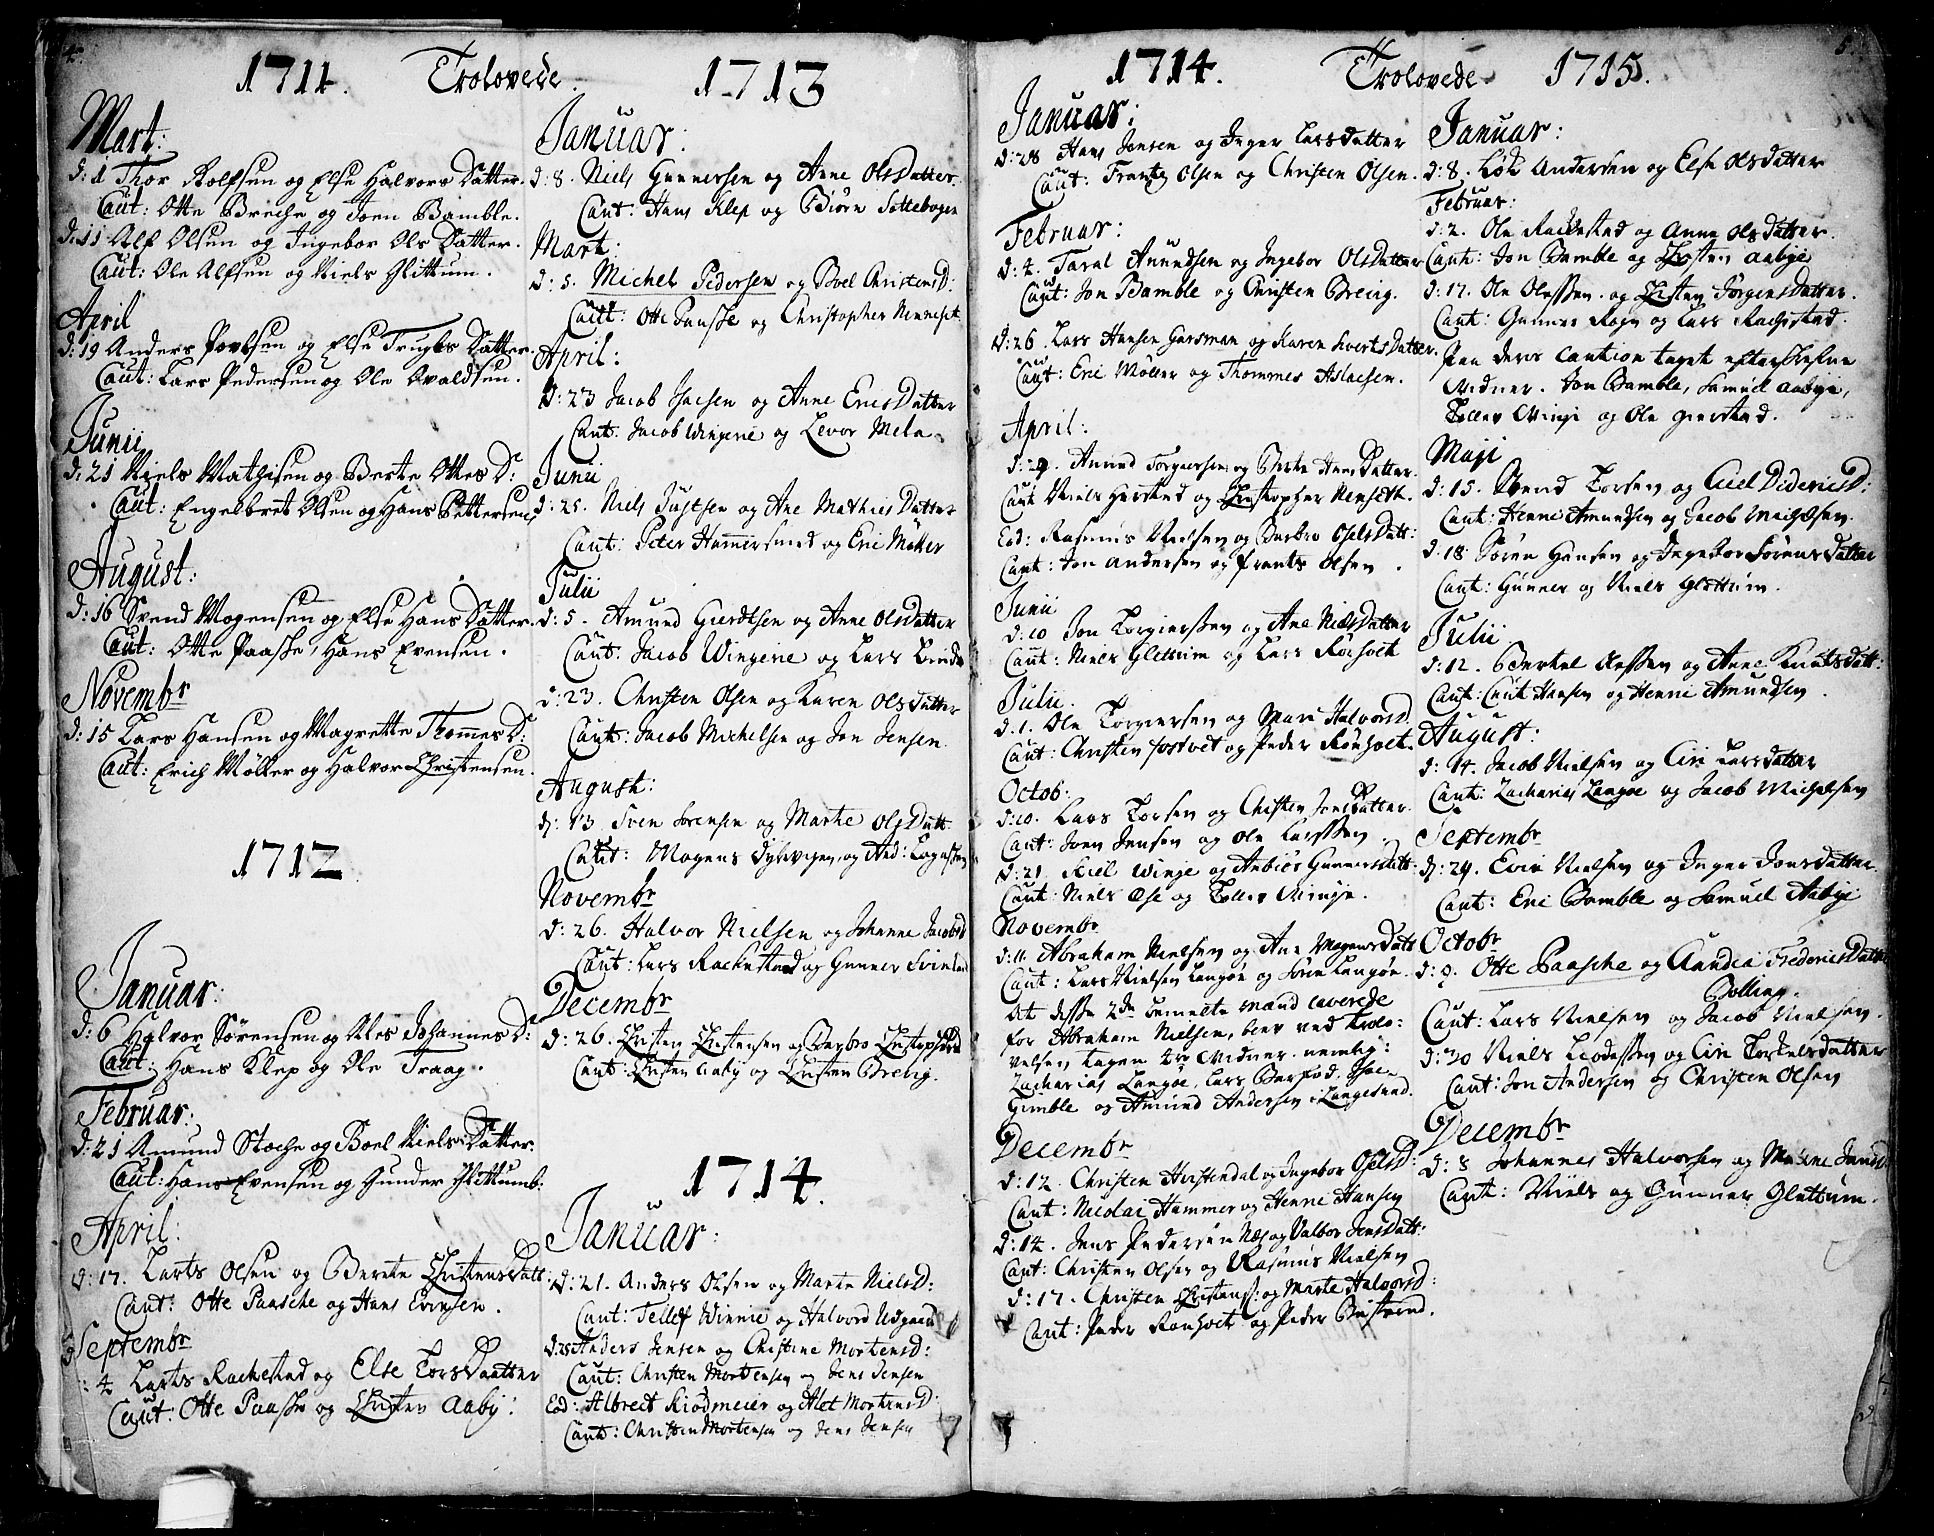 4.
1711. Trolovede.
Mart:
d: 1 Thor Rolfsen og Else Halvors Datter.
Caut: Otte Breche og Joen Bamble.
d: 11 Alf Olsen og Ingebor Ols Datter.
Caut: Ole Alfsen og Niels Glittum.
April
d: 19 Anders Povelsen og Else Truls Datter.
Caut: Lars Pedersen og Ole Ovaldsen.
Junii
d: 21 Niels Mathisen og Berte Ottes D:
Caut: Engelbret Olsen og Hans Pettersen.
August:
d: 16 Svend Mogensen og Else Hans Datter.
Caut: Otte Paaske, Hans Evensen.
Novembr
d: 15 Lars Hansen og Magrette Thommes D:
Caut: Erich Møller og Halvor Christensen.
1712
Januar:
d: 6 Halvor Sørensen og Johannes D:
Caut: Hans Klep og Ole Traag.
Februar:
d: 21 Amund Stoche og Boel Niels Datter.
Caut: Hans Evensen og Gunder Glittumb:
April:
d: 17. Larts Olsen og Berete Christensdatt:
Caut: Otte Paasche og Hans Evensen.
Septembr
: 4 Larts Rachestad og Else Torsdaatter
Caut: Otte Paaske og Christen Aaby:
1713
Januar:
d: 8. Niels Gunnersen og Anne Olsdatter.
Caut: Hans Klep og Biørn Sættebogen
Mart:
d: 5. Michel Pedersen og Boel ChristensD:
Caut: Otte Paaske og Christopher Nenneset.
April:
d: 23 Jacob Isacsen og Anne EricsDatter
Caut: Jacob Wingerie og Levor Mela.
Junii
d: 25. Niels Justsen og Ane MathiesDatter
Caut: Peter Hammersmed og Eric Møller
Julii
d: 5. Amund Giertsen og Anne OlsDatter
Caut: Jacob Wingerie og Lars
d: 23. Christen Olsen og Karen OlsDatter
Caut: Jacob Michelsen og Jon Jensen.
August:
d: 13 Sven Sørensen og Marte OlsDatt
Caut: Mogens Dybevigen, og And: Lagessen
Novembr
d: 26. Halvor Nielsen og Johanne Jacobsd
Caut: Lars Rachestad og Gunner
Decembr
d: 26. Christen Christensen og Barbro Christophersd
Caut: Christen Aaby og Christen Brevig.
1714.
Januar:
d: 21. Anders Olsen og Marte NielsD:
Caut: Tellef Winnie og Halvord Udgaard
d:25 Anders Jensen og Christine MortensD:
Caut: Christen Mortensen og Jens Jensen
Eod: Albrect Kiødmeier og Alet MortensD:
Caut: Christen Mortensen og Jens Jensen
1714. Trolovede
Januar:
d: 28 Hans Jensen og Inger LarsDatter
Caut: Frantz Olsen og Christen Olsen.
Februar:
d: 4. Taral Anundsen og Ingebor OlsDatter
Caut: Jon Bamble og Christen Brevig.
d: 26. Lars Hansen Garsman og Karen SivertsDatter.
Caut: Eric Møller og Thommes Aslacsen.
April:
d: 29. Anund Torgiersen og Berte HansDatter.
Caut Niels Herstad og Christopher Nenseth.
Eod: Rasmus Nielsen og Barbro OselsDatt:
Caut: Jon Andersen og Frants Olsen.
Junii
d: 10 Jon Torgierssen og Ane NielsDatter
Caut: Niels Glettum og Lars Rørholt
Julii.
d. 1. Ole Torgiersen og Mari Halvorsd.
Caut: Christen Fostvet og Peder Rønholt.
Octob:
d: 10. Lars Torsen og Christen JonsDatter.
Caut: Joen Jensen og Ole Larssen.
d: 21. Kiel Winje og Anbiør Gunnersdatt:
Caut: Niels Ose og Tollev Winje.
Novembr
d: 11. Abraham Nielsen og Ane Mogensdatt
Caut: Lars Nielsen Langøe og Søren Langøe.
At desse 2de bemelte mænd caverede
for Abraham Nielsen, blev ved Trolo-
velsen tagen 4re Vidner. nemlig:
Zacharias Langøe, Lars Barfod, Isac
Gimble og Amund Andersen i Langesund.
Decembr
d: 12. Christen Herstendal og Ingebor OselsD:
Caut: Nicolai Hammer og Henne Hansen
d: 14. Jens Pedersen Næs og Valbor Jensdatt:
Caut: Christen Olsen og Rasmus Nielsen
d: 17. Christen Christenss: og Marte Halvorsd:
Caut: Peder Rønholt og Peder
5.
1715.
Januar:
d: 8. Andersen og Else Olsdatter
Februar:
d: 2. Ole Rachestad og Anne Olsdatter.
Caut: Jon Bamble og Christen Aabye
d: 17. Ole Olessen. og Christen JørgensDatter.
Caut: Gunner Rogn og Lars Rachestad.
Paa deris caution taget efterskrefne
Vidner. Jon Bamble, Samuel Aabye,
Tollev Winje og Ole Gierstad.
Maji
d: 15. Svend Torsen og Ciel DidericsD:
Caut: Henne Amundsen og Jacob Michelsen.
d: 18. Søren Hansen og Ingebor Sørensdatter
Caut: Gunner og Niels Glettum.
Julii.
d: 12. Bertel Olessen og Anne Knutsdatt:
Caut: Cnut Hansen og Henne Amundsen.
August:
d: 14. Jacob Nielsen og Ciri Larsdatter
Caut: Zacharias Langøe og Jacob Michelsen
Septembr
d: 29. Even Nielsen og Inger Jonsdatter
Caut: Eric Bamble og Samuel Aabye
Octobr
d: 9. Otte Paasche og Aandea FredericsDatter
Bolling.
Caut: Lars Nielsen og Jacob Nielsen.
d: 30 Niels Leodessen og Ciri Torkelsdatter
Caut: Jon Andersen og Christen Olsen
Decembr
d: 8 Johannes Halvorsen og
Caut: Niels og Gunner Glettum.